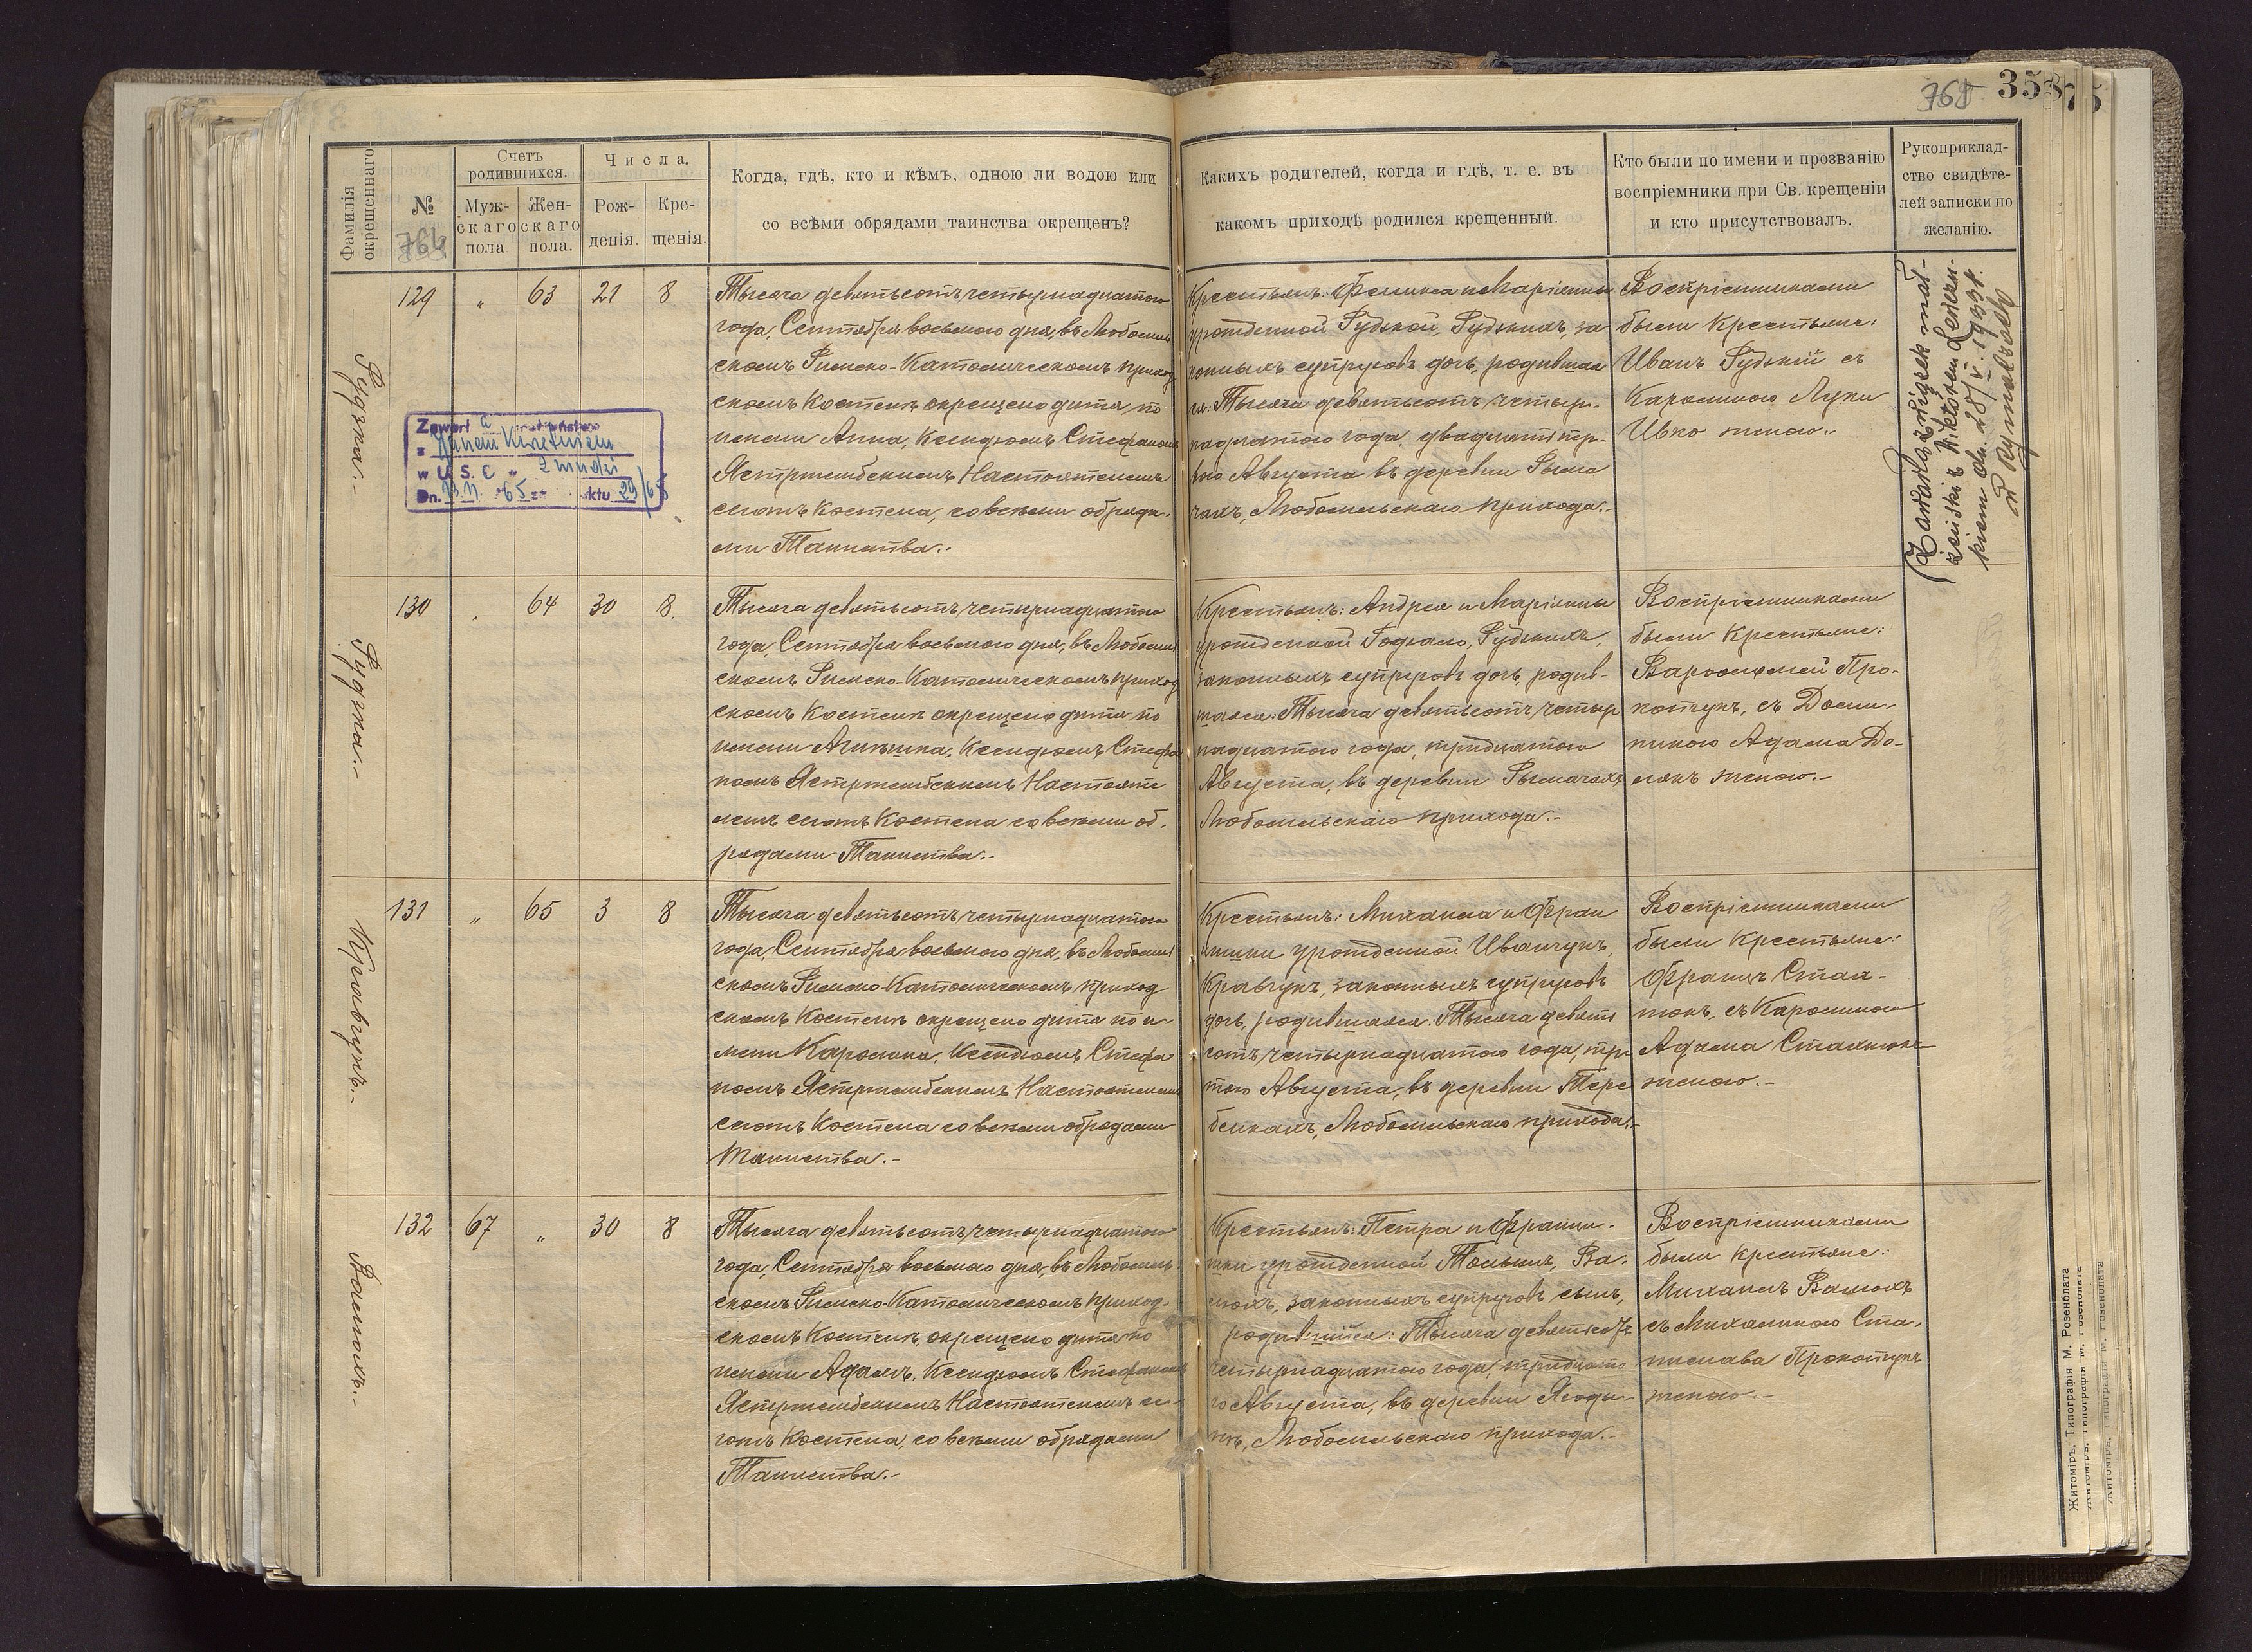 765 358
Фамилія окрещеннаго
№
764
Счетъ родившихся.
Муж-
скаго
пола
Жен-
скаго
пола.
Числа.
Рож-
денія.
Кре-
щенія.
Когда, гдѣ, кто и кѣмъ, одною ли водою или
со всѣми обрядами таинства окрещенъ?
Какихъ родителей, когда и гдѣ, т. е. въ
какомъ приходѣ родился крещенный.
Кто были по имени и прозванію
воспріемники при Св. крещеніи
и кто присутствовалъ.
Рукоприклад-
ство свидѣте-
лей записки по
желанію.
Рудзка.-
129 „ 63 21 8
Тысяча девятьсотъ четырнадцатого
года, Сентября восьмого дня, въ Любомль
скомъ Римско-Католическомъ приход
скомъ Костелѣ окрещено дитя по
имени Анна, Ксендзомъ Стефаномъ
Ястржембскимъ Настоятелемъ
сеготъ Костела, со всѣми обряда-
ми Таинства.-
Крестьянъ: Феликса и Маріанны
урожденной Рудзкой, Рудзкихъ, за
конныхъ супруговъ дочь, родившая
ся: Тысяча девятьсотъ четыр-
надцатого года, двадцать пер-
вого Августа въ деревни Рыма
чахъ, Любомльскаго прихода.-
Воспріемниками
были Крестьяне:
Иванъ Рудзкій съ
Каролиною Луки
Ивко женою.-
Zawarła związek mał-
żeński z Wiktorem
kiem dn. 28/V. 1938.
Zawarł a małżeństwo
z Janem
w U. S. C.
Dn. 65 aktu 29/65
Рудзка.-
130 „ 64 30 8.
Тысяча девятьсотъ четырнадцатого
года, Сентября восьмого дня, въ Любомль
скомъ Римско-Католическомъ приход
скомъ Костелѣ окрещено дитя по
имени Агнѣшка, Ксендзомъ Стефа
номъ Ястржембскимъ Настояте
лемъ сеготъ Костела со всѣми об-
рядами Таинства.-
Крестьянъ: Андрея и Маріанны
урожденной Рудзкихъ,
законныхъ супруговъ дочь, родив-
шаяся: Тысяча девятьсотъ четыр
надцатого года, тридцатого
Августа, въ деревни Рымачахъ,
Любомльскаго прихода.-
Воспріемниками
были Крестьяне:
Варфоломей Про-
котукъ, съ Доми-
никою Адама До-
лякъ женою.-
Кравчукъ.-
131 „ 65 3 8
Тысяча девятьсотъ четырнадцатого
года, Сентября восьмого дня, въ Любомль
скомъ Римско-Католическомъ приход
скомъ Костелѣ окрещено дитя по и-
мени Каролина, Ксендзомъ Стефа
номъ Ястржембскимъ Настоятелемъ
сеготъ Костела со всѣми обрядами
Таинства.-
Крестьянъ: Михаила и Фран
цишки урожденной Иванчукъ,
Кравчукъ, законныхъ супруговъ
дочь, родившаяся: Тысяча девять
сотъ четырнадцатого года, тре
тьяго Августа, въ деревни Тере
бейкахъ, Любомльскаго прихода.-
Воспріемниками
были Крестьяне:
Францъ Стах-
нюкъ, съ Каролиною
Адама Стахнюкъ
женою.-
Валюхъ.-
132 67 „ 30 8
Тысяча девятьсотъ четырнадцатого
года, Сентября восьмого дня, въ Любомль
скомъ Римско-Католическомъ приход-
скомъ Костелѣ, окрещено дитя по
имени Адамъ, Ксендзомъ Стефаномъ
Ястржембскимъ Настоятелемъ се-
готъ Костела, со всѣми обрядами
Таинства.-
Крестьянъ: Петра и Францы-
шки урожденной Ва-
люхъ, законныхъ супруговъ сынъ,
родившійся: Тысяча девятьсотъ
четырнадцатого года, тридцато
го Августа, въ деревни Ягоды-
нѣ, Любомльскаго прихода.-
Воспріемниками
были Крестьяне:
Михаилъ Валюхъ
съ Михалиною Ста-
нислава Прокотукъ
женою.-
Житоміръ, Типографія М. Розенблата